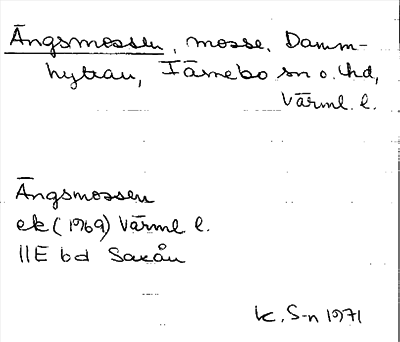 Ängsmossen, mosse, Damm-
hyttan, Färnebo sn o. hd,
Värml. l.
Ängsmossen
ek (1969) Värml l.
11E bd Saxån
K. S-n 1971